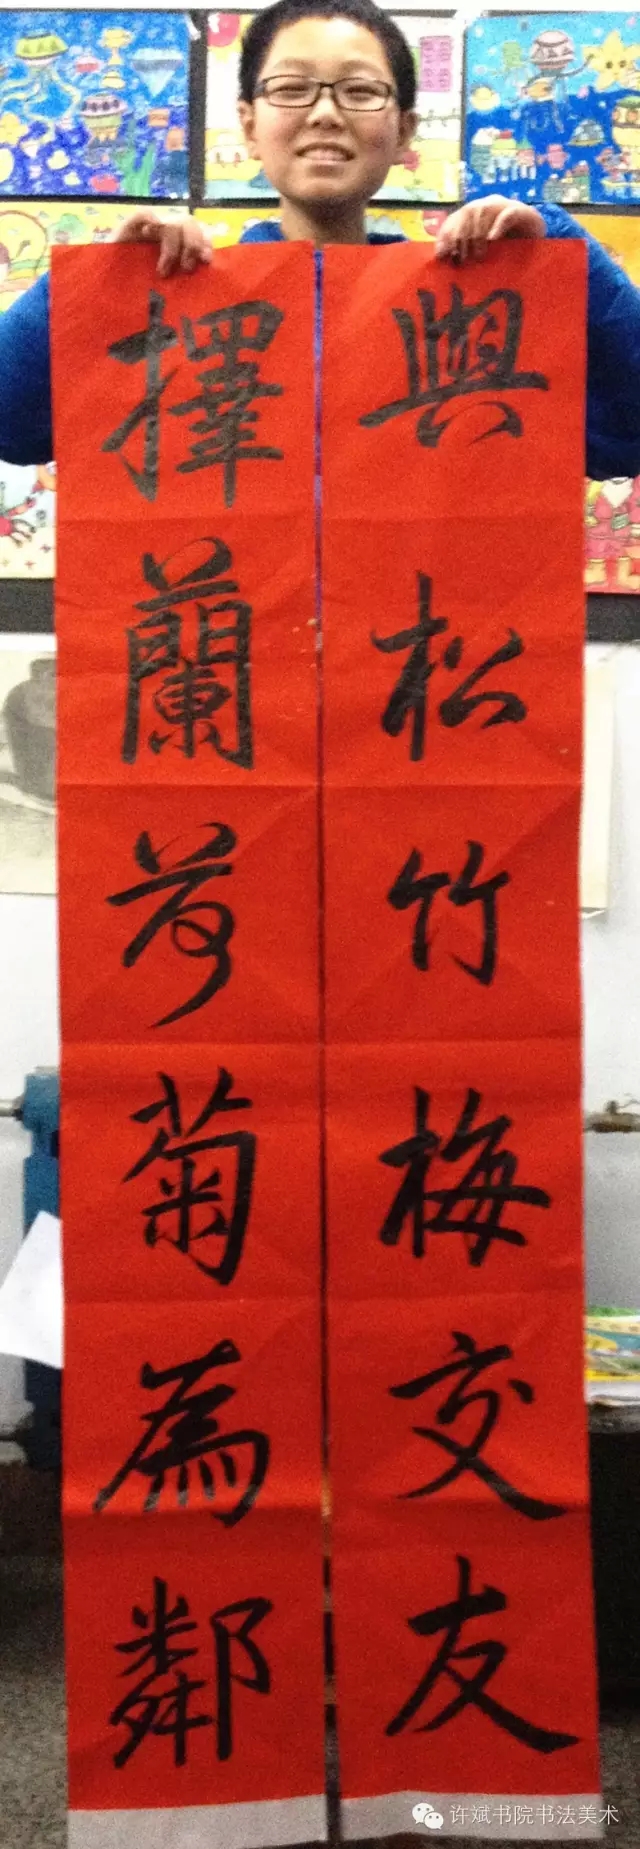 與松竹梅交友
擇蘭荷菊為鄰
许斌书院书法美术